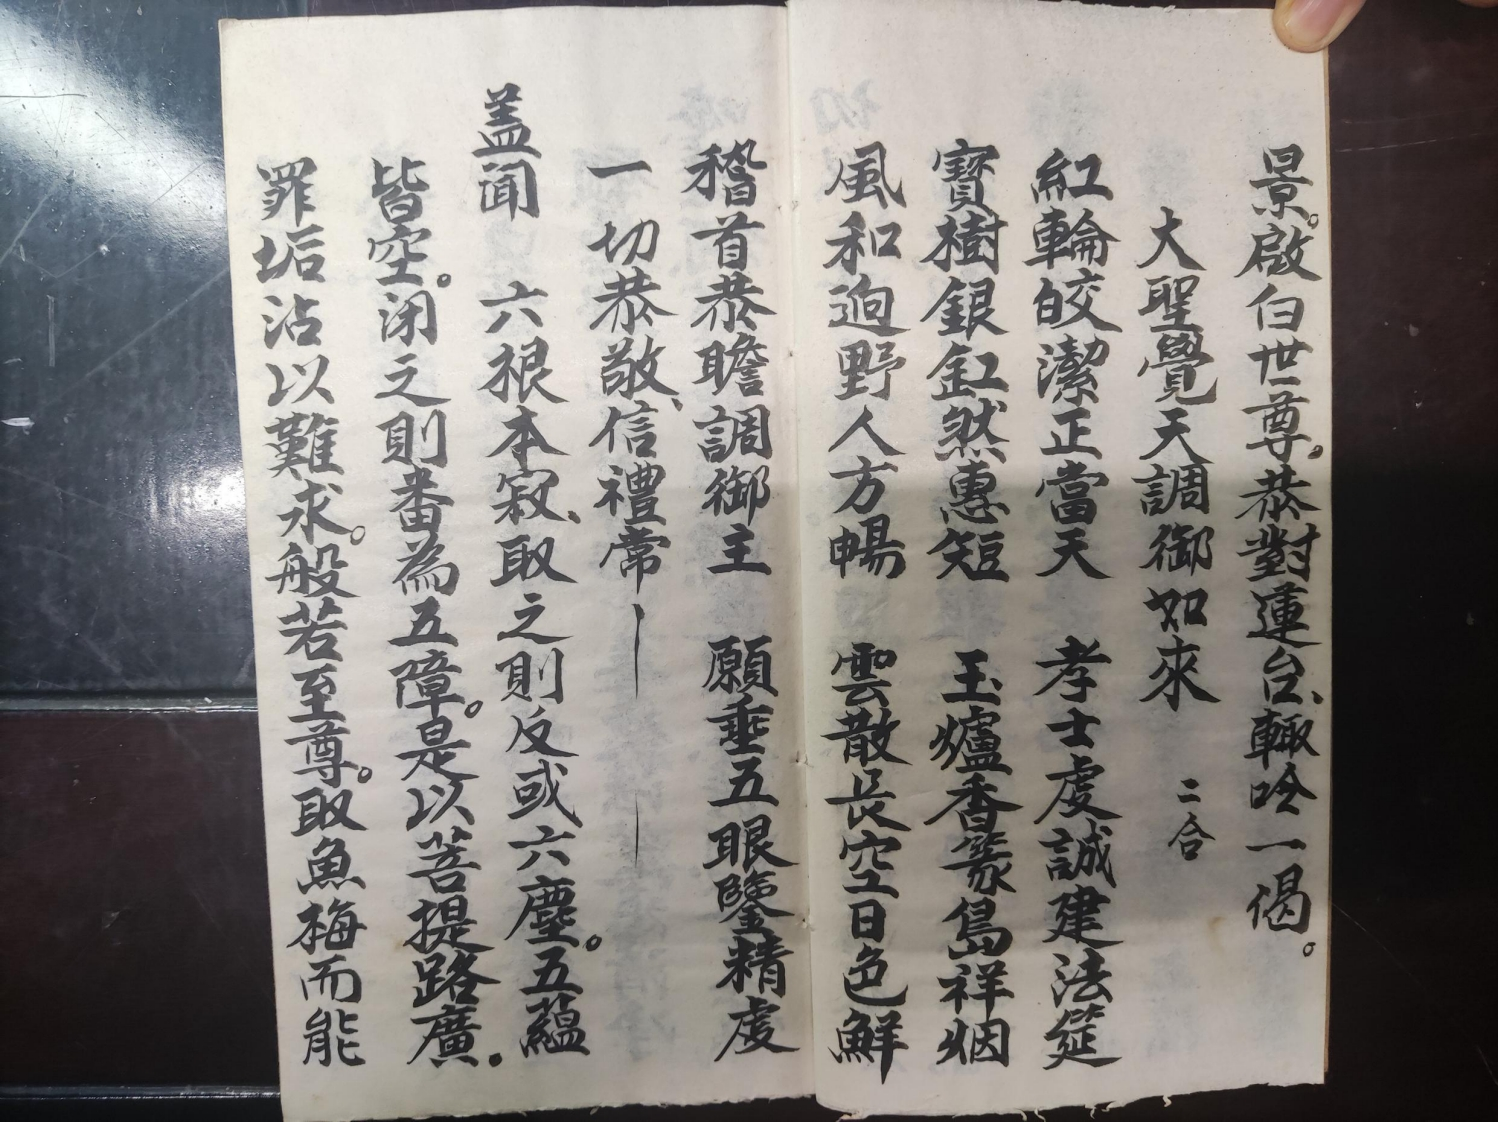 景。啟白世尊。恭對蓮台、輙吟一偈。
大聖覺天調御如來 二合
紅輪皎潔正當天 孝士虔誠建法筵
寳樹銀缸然惠短 玉爐香篆裊祥烟
風和迥野人方暢 雲散長空日色鮮
稽首恭瞻調御主 願垂五眼鑒精虔
一切恭敬、信禮常
盖聞 六根本寂、取之則反或六塵。五蘊
皆空。闭之則番為五障。是以菩提路廣。
罪垢沾以難求。般若至尊。取魚梅而能